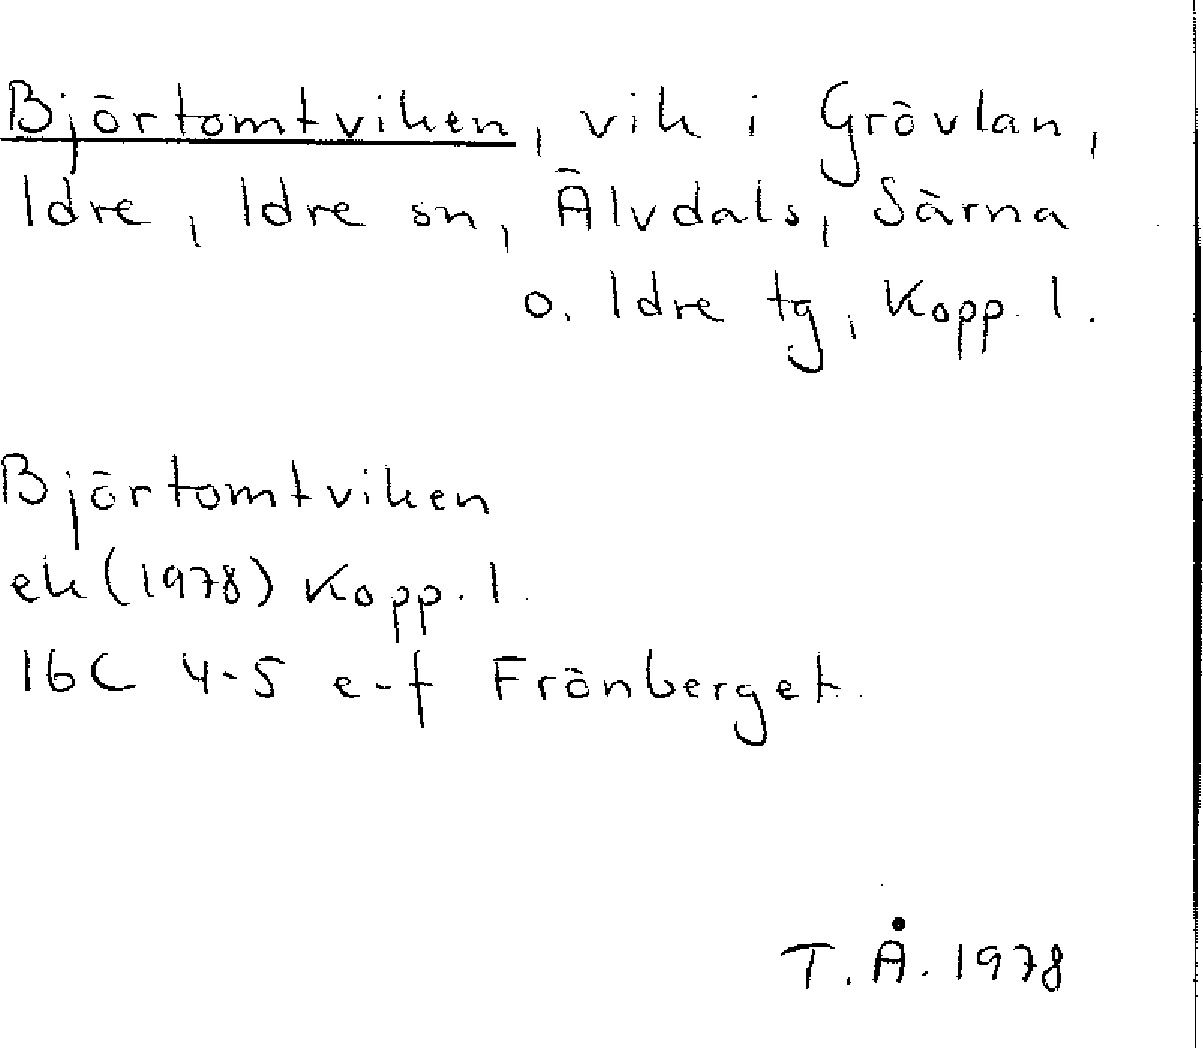 Björtomtviken, vik i Grövlan,
Idre, Idre sn, Älvdals, Särna
o. Idre tg, Kopp. l.
Björtomtviken
ek (1978) Kopp. l.
16C 4-5 e-f Frönberget.
T. Å. 1978